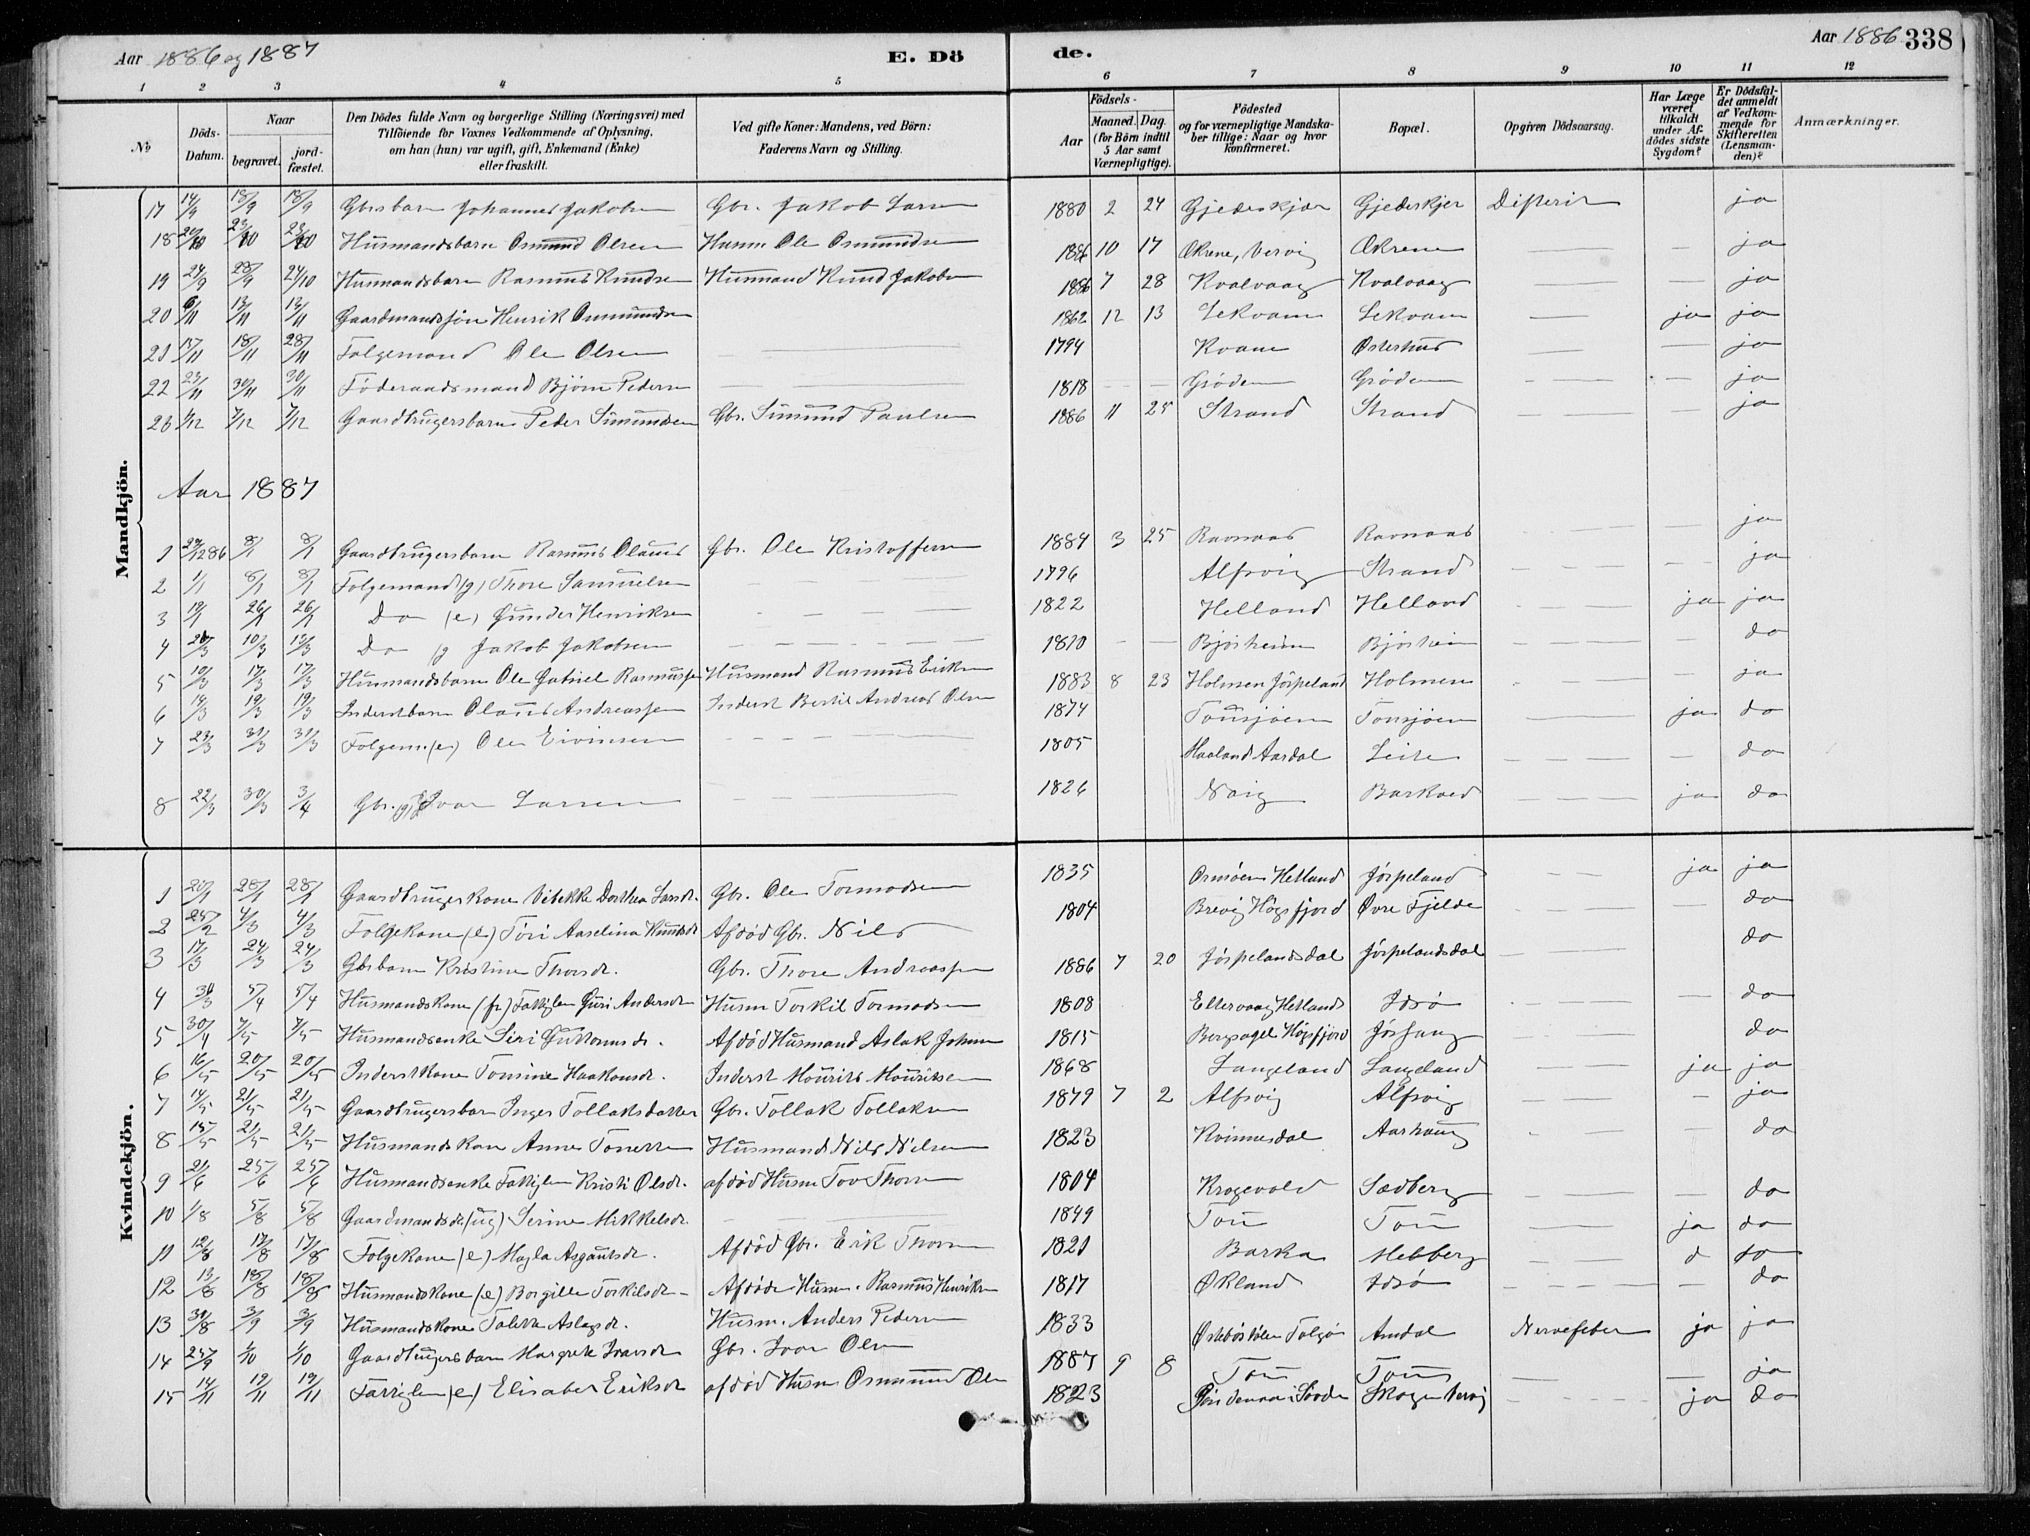 Aar 1886 og 1887 E. Dö de. Aar 1886 338
1 2 3 4 5 6 7 8 9 10 11 12
No
Döds-Datum.
Naar begravet. jord-fæstet.
Den Dödes fulde Navn og borgerlige Stilling (Næringsvei) med
Tilföiende for Voxnes Vedkommende af Oplysning,
om han (hun) var ugift, gift, Enkemand (Enke)
eller fraskilt.
Ved gifte Koner: Mandens, ved Börn:
Faderens Navn og Stilling.
Födsels-
Aar
Maaned. Dag.
(for Börn indtil
5 Aar samt
Værnepligtige).
Födested
og for værnepligtige Mandska-
ber tillige: Naar og hvor
konfirmeret.
Bopæl.
Opgiven Dödsaarsag.
Har Læge
været
tilkaldt
under Af-
dödes sidste
Sygdom?
Er Dödsfal-
det anmeldt
af Vedkom-
mende for
Skifteretten
(Lensman-
den)?
Anmærkninger.
Mandkjön.
17 14/9 18/9 18/9 Gbrs barn Johannes Jakobsen Gbr. Jakob Larsen 1880 2 24 Gjedeskjær Gjedeskjer Difterit ja
18 20/10 23/10 23/10 Husmandsbarn Osmund Olsen Husm Ole Osmundsen 1886 10 17 Økrene, Vervig Økrene — ja
19 24/9 28/9 24/10 Husmandsbarn Rasmus Knudsen Husmand Knud Jakobsen 1886 7 28 Kvalvaag Kvalvaag — — ja
20 6/11 13/11 13/11 Gaardmandssön Henrik Osmundsen 1862 12 13 Lekvam Lekvam — ja ja
21 15/11 18/11 28/11 Folgemand Ole Olsen — 1794 Kvam Østerhus — — ja
22 23/11 30/11 30/11 Föderaadsmand Björn Pedersen — 1818 — — Gröden Gröden — — ja
23 1/12 7/12 7/12 Gaardbrugersbarn Peder Simundsen Gbr. Simund Paulsen 1886 11 25 Strand Strand — — ja
Aar 1887
1 29/12 86 8/1 8/1 Gaardbrugersbarn Rasmus Olaus Gbr. Ole Kristoffersen 1884 3 25 Ravnaas Ravnaas — ja
2 1/1 8/1 8/1 Folgemand (g) Thore Samuelsen — 1796 Alsvig Strand — ja
3 19/1 26/1 26/1 Do (e) Gunder Henriksen — 1822 Helland Helland — ja ja
4 28/3 10/3 13/3 Do g Jakob Jakobsen — 1810 — — Bjørheim Bjørheim — do
5 10/3 17/3 17/3 Husmandsbarn Ole Gabriel Rasmussen Husmand Rasmus Eriksen 1883 8 23 Holmen Jörpeland Holmen — — ja
6 14/3 19/3 19/3 Inderstbarn Olaus Andreassen Inderst Bertil Andreas Olsen 1874 Tousjöen Tousjöen — ja do
7 23/3 31/3 31/3 Folgem. (e) Ole Eivinsen — 1805 Haaland Aardal Leite — — do
8 22/3 30/3 3/4 Gbr. (g) Ivar Larsen — 1826 Barkved — ja do
Kvindekjön.
1 20/1 28/1 28/1 Gaardbrugerkone Vibekke Dorthea Larsdr. Gbr. Ole Tormodsen 1835 Hetland Jörpeland — ja ja
2 25/2 4/3 4/3 Folgekone (e) Töri Aaselina Knutsdr Afdöd Gbr. Nils 1804 Brevig Högsfjord Øvre Fjelde — do
3 17/3 24/3 24/3 Gbrs barn Kristine Thorsdr. Gbr. Thore Andreassen 1886 7 20 Jörpelandsdal Jörpelandsdal — do
4 31/3 5/4 5/4 Husmandskone Fattiglem Guri Andersdr Husm Torkil Tormodsen 1808 Eltervaag Hetland Idsö — — do
5 30/4 7/5 7/5 Husmandsenke Siri Guttormsdr. Afdöd Husmand Aslak Johnsen 1815 Bergsagel Högsfjord Jössang — do
6 16/5 20/5 20/5 Inderstkone Tomine Haakonsdr. Inderst Mourits Mouritsen 1868 Langeland Langeland ja ja
7 14/5 21/5 21/5 Gaardbrugersbarn Inger Tollaksdatter Gbr. Tollak Tollaksen 1879 7 2 Alsvig Alsvig — ja
8 15/5 21/5 21/5 Husmandskone Anne Tonette Husmand Nils Nilsen 1823 Kvinnesdal Aarhaug — do
9 21/6 25/6 25/6 Husmandsenke Fattiglem Kristi Olsdr. afdöd Husm Tov Thorsen 1804 Krogevold Sedberg — — do
10 1/8 5/8 5/8 Gaardmandsdr (ug) Serine Mikkelsdr. — 1849 Tou Tou — ja do
11 12/8 17/8 17/8 Folgekone (e) Magla Asgautsdr. Afdöd Gbr. Erik Thorsen 1821 Barka Mebberg — d ja
12 13/8 18/8 18/8 Husmandskone (e) Borgille Torkilsdr. Afdöde Husm. Rasmus Henriksen 1817 Økland Idsö — — do
13 30/8 3/9 3/9 Husmandskone Talette Aslagsdr. Husm. Anders Pedersen 1833 Amdal Nervefeber ja ja
14 25/9 1/10 1/10 Gaardbrugersbarn Margrete Ivarsdr Gbr. Ivar Olsen 1887 9 8 Tou Tou — — ja
15 14/11 19/11 19/11 Fattiglem (e) Elisabet Eriksdr afdöd Husm Osmund Olsen 1823 Skogen Vervig — ja do